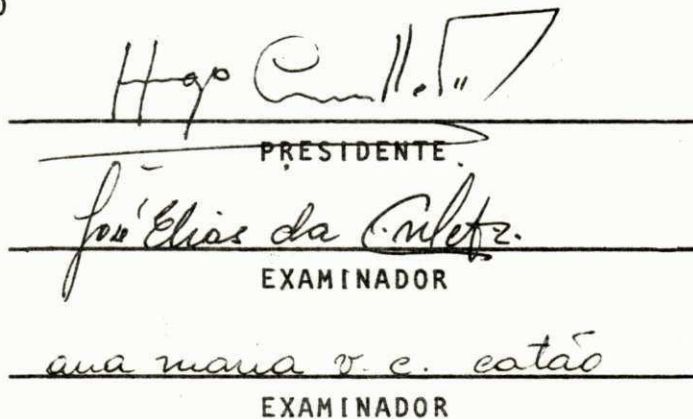 Hugo
PRESIDENTE
José Elias da
EXAMINADOR
ana maria v. c. catão
EXAMINADOR